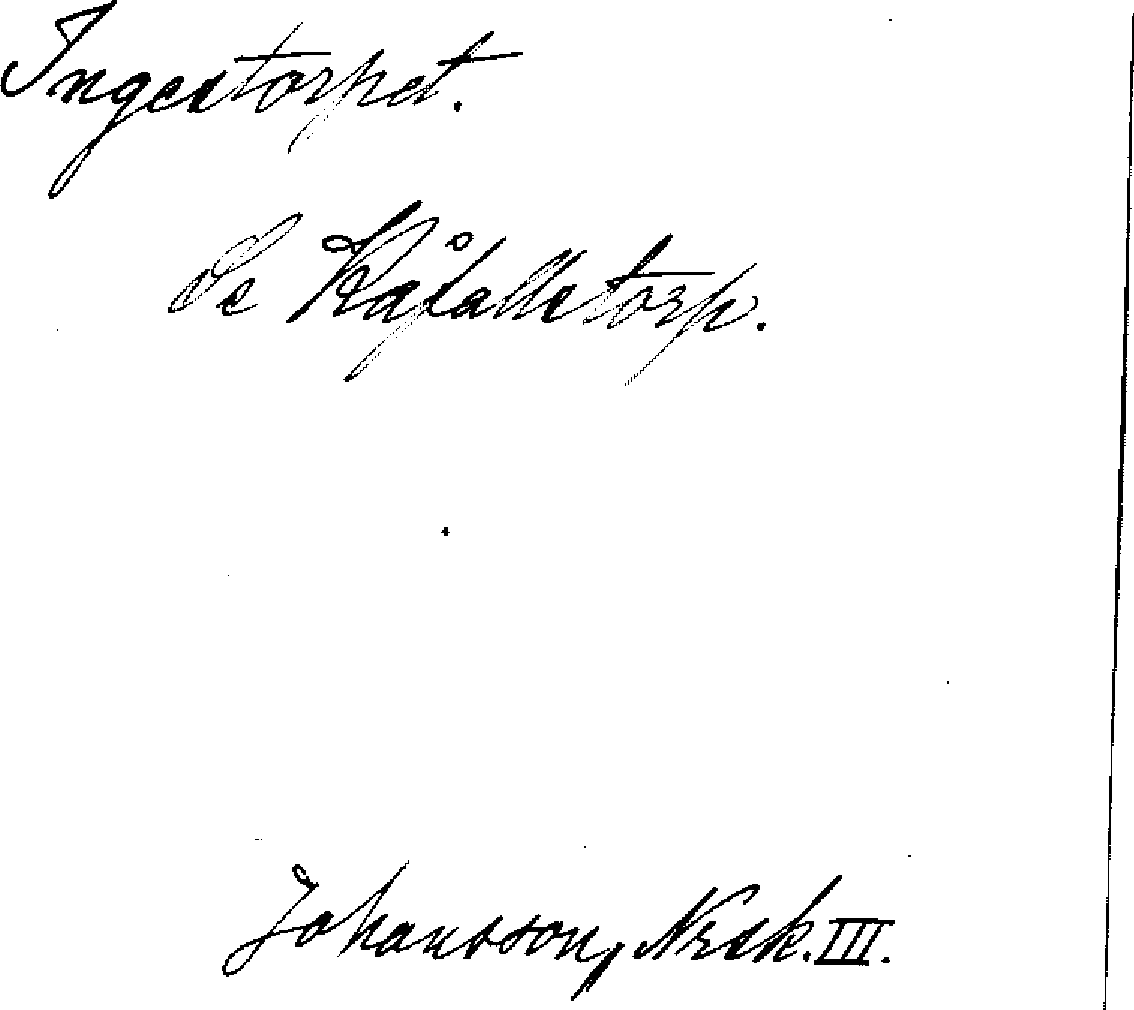 Ingestorpet.
Se Kåfalltorp.
Johansson, Nrsk. III.